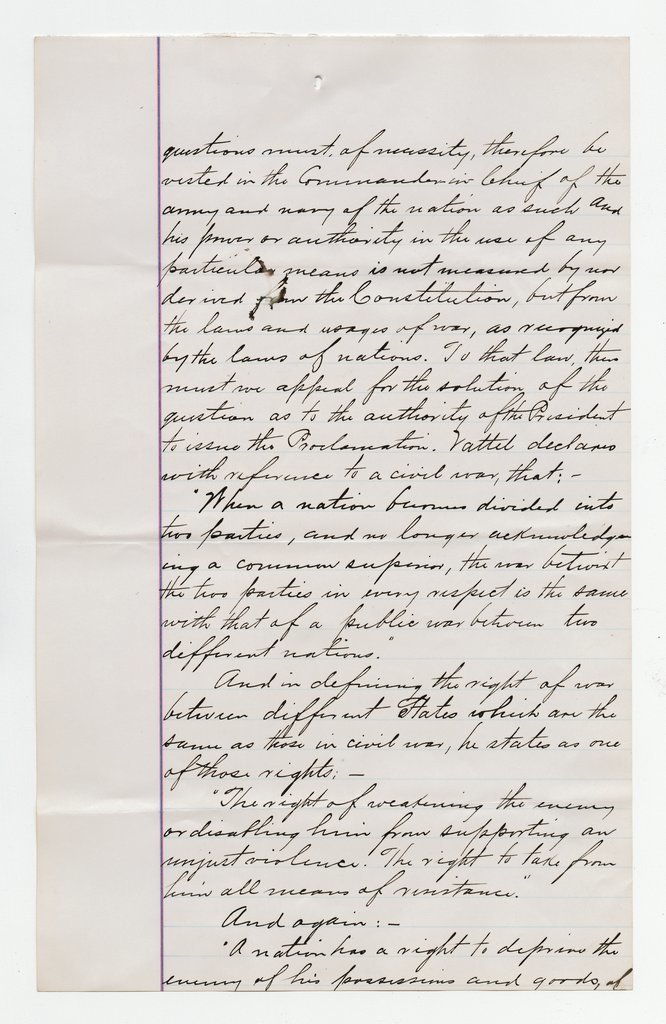 questions must, of necessity, therefore be
vested in the Commander in Chief of the
army and navy of the nation as such and
his power or authority in the use of any
particular means is not measured by nor
derived from the Constitution, but from
the laws and usages of war, as recognized
by the laws of nations. To that law, then
must we appeal for the solution of the
question as to the authority of the President
to issue the Proclamation. Vattel declares
with reference to a civil war, that: -
"When a nation becomes divided into
two parties, and no longer acknowledge
ing a common superior, the war betwixt
the two parties in every respect is the same
with that of a public war between two
different nations."
And in defining the right of war
between different States which are the
same as those in civil war, he states as one
of those rights: -
"The right of weakening the enemy
or disabling him from supporting an
unjust violence. The right to take from
him all means of resistance."
And again: -
"A nation has a right to deprive the
enemy of his possessions and goods, of